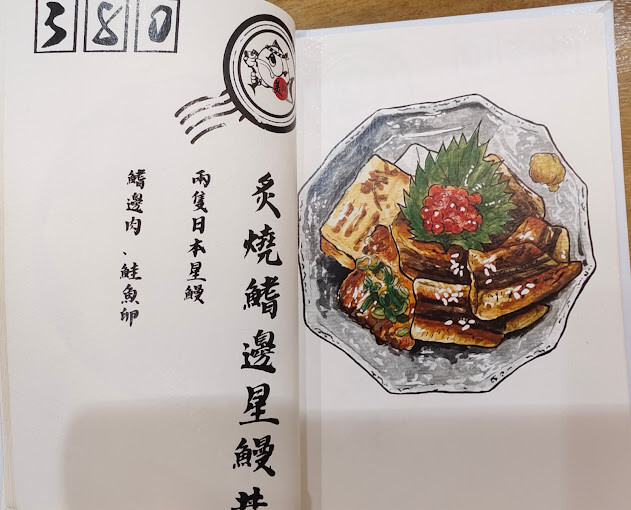 380
炙燒鰭邊星鰻丼
兩隻日本星鰻
鰭邊肉、鮭魚卵